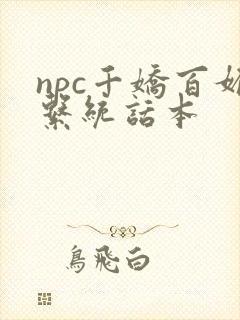 npc千嬌百媚
繫統話本
鳥飛白